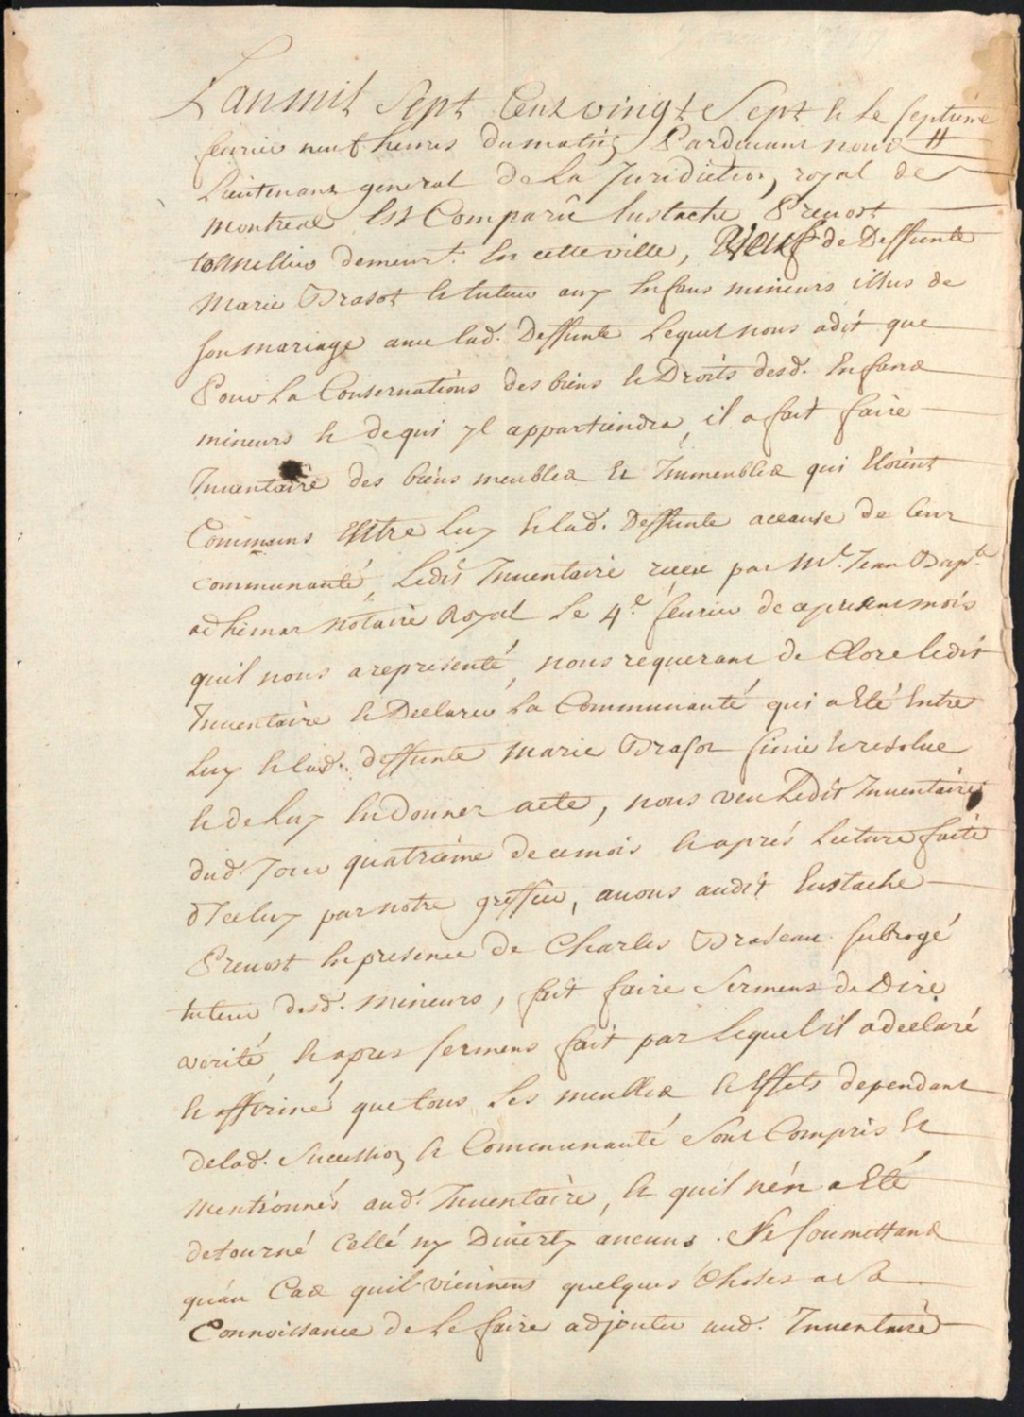 Lan mil Sept Cent vingt Sept & le septieme
fevrier neuf heures du matin Pardevant nous
Lieutenant general de La Juridiction royal de
montreal Est Comparû Eustache Prevost
tonnellier demeurt. En cette ville, veuf de Deffunte
Marie Brasot & tuteur aux Enfans mineurs issus de
son mariage avec lad. Deffunte Lequel nous a dit que
Pour La Conservations des biens & Droits desd. Enfans
mineurs & de qui yl appartiendra, il a fait faire
Inventaire des biens meubles Et Immeubles qui Etoient
Communs Entre Luy & lad. Deffunte acause de leur
communauté, Ledit Inventaire receu par Me. Jean Bapte.
adhemar notaire Royal Le 4e. fevrier de apresent mois
quil nous a representé, nous requerant de Clore ledit
Inventaire & Declarer La Communauté qui a Eté Entre
Luy & lad. deffunte Marie Brasot finie & resolue
& de Luy En Donner acte, nous veu Ledit Inventaire
dud. Jour quatrieme de ce mois & aprés Lecture faite
d'Iceluy par notre greffier, avons audit Eustache
Prevost En presence de Charles Brazeau subrogé
tuteur desd. mineurs, fait faire serment de Dire
verité, & apres serment fait par Lequel il a declaré
& affirmé que tous Les meubles & Effets dependant
de lad. Succession & Communauté Sont Compris Et
mentionnés aud. Inventaire, & quil n'en a Eté
detourné Cellé ny Diverty aucuns. Se soumettant
qu'au Cas quil viennent quelques Choses a Sa
Connoissance de Le faire adjouter aud. Inventaire